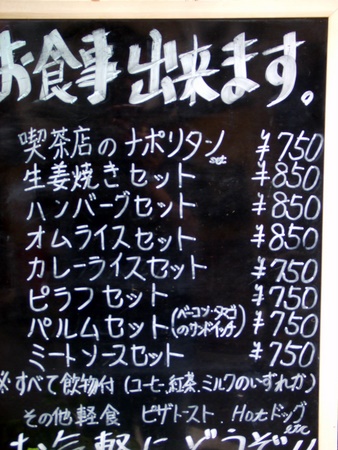 お食事出来ます。
喫茶店のナポリタン set ¥750
生姜焼きセット ¥850
ハンバーグセット ¥850
オムライスセット ¥850
カレーライスセット ¥750
ピラフセット ¥750
パルムセット(ベーコン・タマゴのサンドイッチ) ¥750
ミートソースセット ¥750
※すべて飲物付(コーヒー、紅茶、ミルクのいずれか)
その他軽食 ピザトースト Hotドッグ etc
お気軽にどうぞ!!